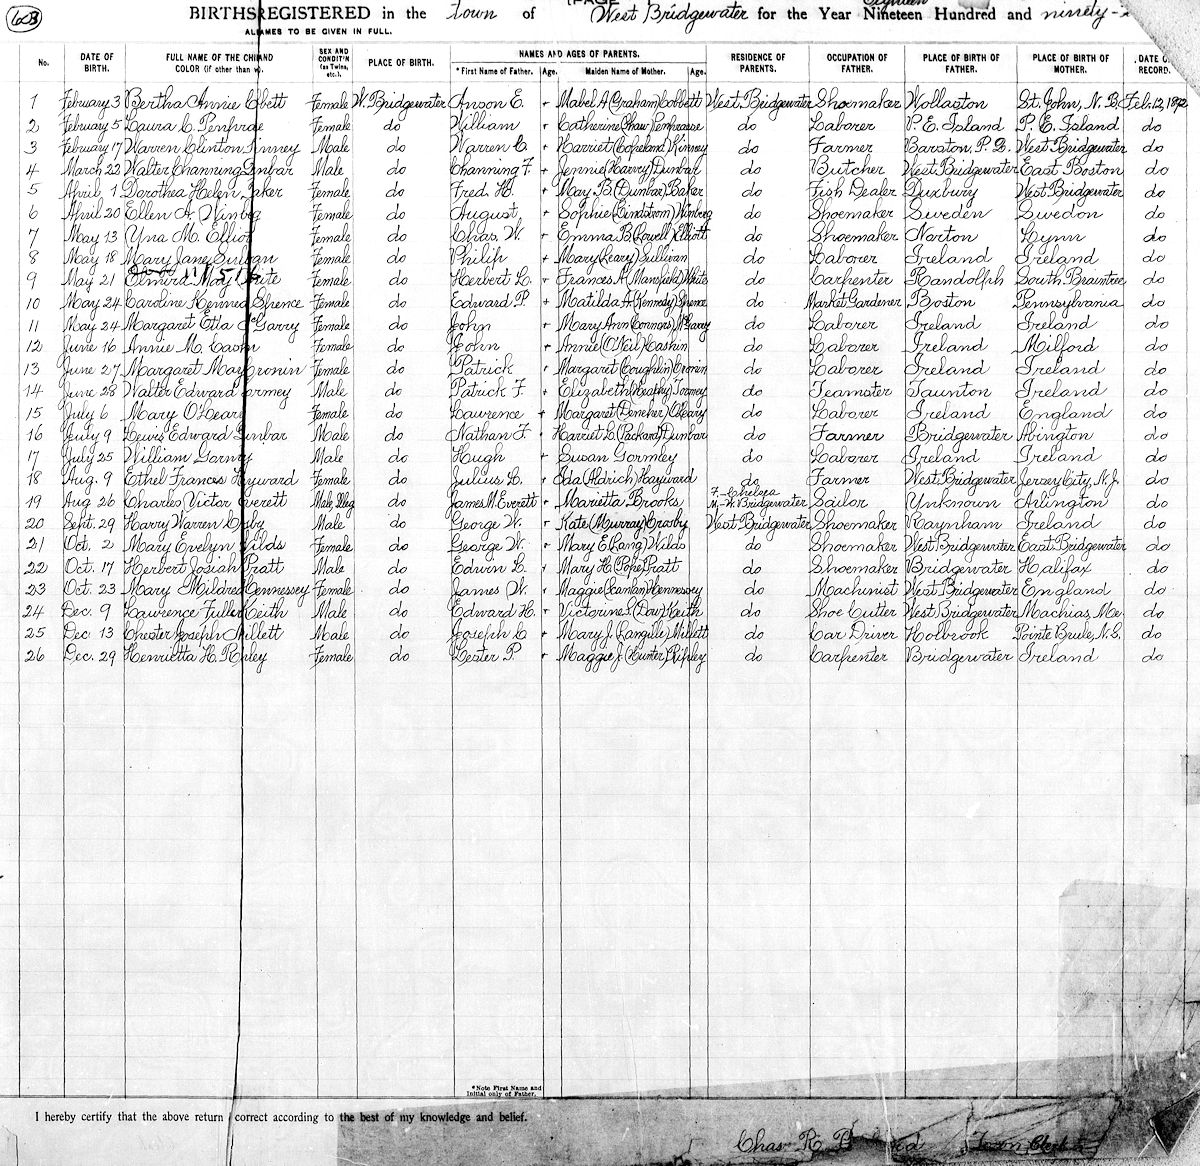 603 BIRTHS REGISTERED in the town of West Bridgewater for the Year Nineteen Hundred and ninety-
Eighteen
ALL NAMES TO BE GIVEN IN FULL.
No. DATE OF BIRTH. FULL NAME OF THE CHILD AND COLOR (if other than w). SEX AND CONDIT'N (as Twins, etc.). PLACE OF BIRTH. NAMES AND AGES OF PARENTS. *First Name of Father. Age. Maiden Name of Mother. Age. RESIDENCE OF PARENTS. OCCUPATION OF FATHER. PLACE OF BIRTH OF FATHER. PLACE OF BIRTH OF MOTHER. DATE OF RECORD.
1 February 3 Bertha Annie Female W. Bridgewater Anson E. + Mabel A (Graham) Cobbett West Bridgewater Shoemaker Wollaston St. John, N. B. Feb. 12, 1892
2 February 5 Laura C. Penfrae Female do William + Catherine (Shaw) do Laborer P. E. Island P. E. Island do
3 February 17 Warren Clinton Kinney Male do Warren C. + Harriet (Copeland) Kinney do Farmer West Bridgewater do
4 March 22 Walter Channing Dunbar Male do Channing F. + Jennie (Harry) Dunbar do Butcher West Bridgewater East Boston do
5 April 1 Dorothea Helen Baker Female do Fred. H. + May B. (Dunbar) Baker do Fish Dealer Duxbury West Bridgewater do
6 April 20 Ellen A. Female do August + Sophie (Lindstrom) Winberg do Shoemaker Sweden Sweden do
7 May 13 Yna M. Elliot Female do Chas. W. + Emma B. (Lowell) Elliott do Shoemaker Norton Lynn do
8 May 18 Mary Jane Female do Philip + Mary (Leary) Sullivan do Laborer Ireland Ireland do
9 May 21 Elmira May White Female do Herbert L. + Frances A. (Mansfield) White do Carpenter Randolph South Braintree do
10 May 24 Caroline Kenned Spence Female do Edward P. + Matilda A (Kennedy) Spence do Market Gardener Boston Pennsylvania do
11 May 24 Margaret Etta McGarry Female do John + Mary Ann (Connors) McGarry do Laborer Ireland Ireland do
12 June 16 Annie M. Female do John + Annie (O'Neil) Cashin do Laborer Ireland Milford do
13 June 27 Margaret May Cronin Female do Patrick + Margaret (Coughlin) Cronin do Laborer Ireland Ireland do
14 June 28 Walter Edward Tormey Male do Patrick F. + Elizabeth (Heaphy) Tormey do Teamster Taunton Ireland do
15 July 6 Mary O'Leary Female do Lawrence + Margaret (Deneher) O'Leary do Laborer Ireland England do
16 July 9 Lewis Edward Dunbar Male do Nathan F. + Harriet L. (Packard) Dunbar do Farmer Bridgewater Abington do
17 July 25 William Male do Hugh + Susan Gormley do Laborer Ireland Ireland do
18 Aug. 9 Ethel Frances Hayward Female do Julius L. + Ida (Aldrich) Hayward do Farmer West Bridgewater Jersey City, N. J. do
19 Aug 26 Charles Victor Everett Male, Illeg do James M. Everett + Marietta Brooks F.- Chelsea M.- W. Bridgewater Sailor Unknown Arlington do
20 Sept. 29 Harry Warren Crosby Male do George W. + Kate (Murray) Crosby West Bridgewater Shoemaker Raynham Ireland do
21 Oct. 2 Mary Evelyn Wilds Female do George W. + Mary E. (Lang) Wilds do Shoemaker West Bridgewater East Bridgewater do
22 Oct. 17 Herbert Josiah Pratt Male do Edwin L. + Mary H. (Pope) Pratt do Shoemaker Bridgewater Halifax do
23 Oct. 23 Mary Mildred Hennessey Female do James W. + Maggie (Scanlan) Hennessey do Machinist West Bridgewater England do
24 Dec. 9 Lawrence Fuller Keith Male do Edward H. + Victorine S. (Day) Keith do Shoe Cutter West Bridgewater Machias, Me. do
25 Dec 13 Chester Joseph Millett Male do Joseph C + Mary J. (Langille) Millett do Car Driver Holbrook Pointe Brule, N. S. do
26 Dec. 29 Henrietta H. Ripley Female do Lester P. + Maggie J. (Hunter) Ripley do Carpenter Bridgewater Ireland do
*Note First Name and
Initial only of Father.
I hereby certify that the above return correct according to the best of my knowledge and belief.
Chas. R. Town Clerk